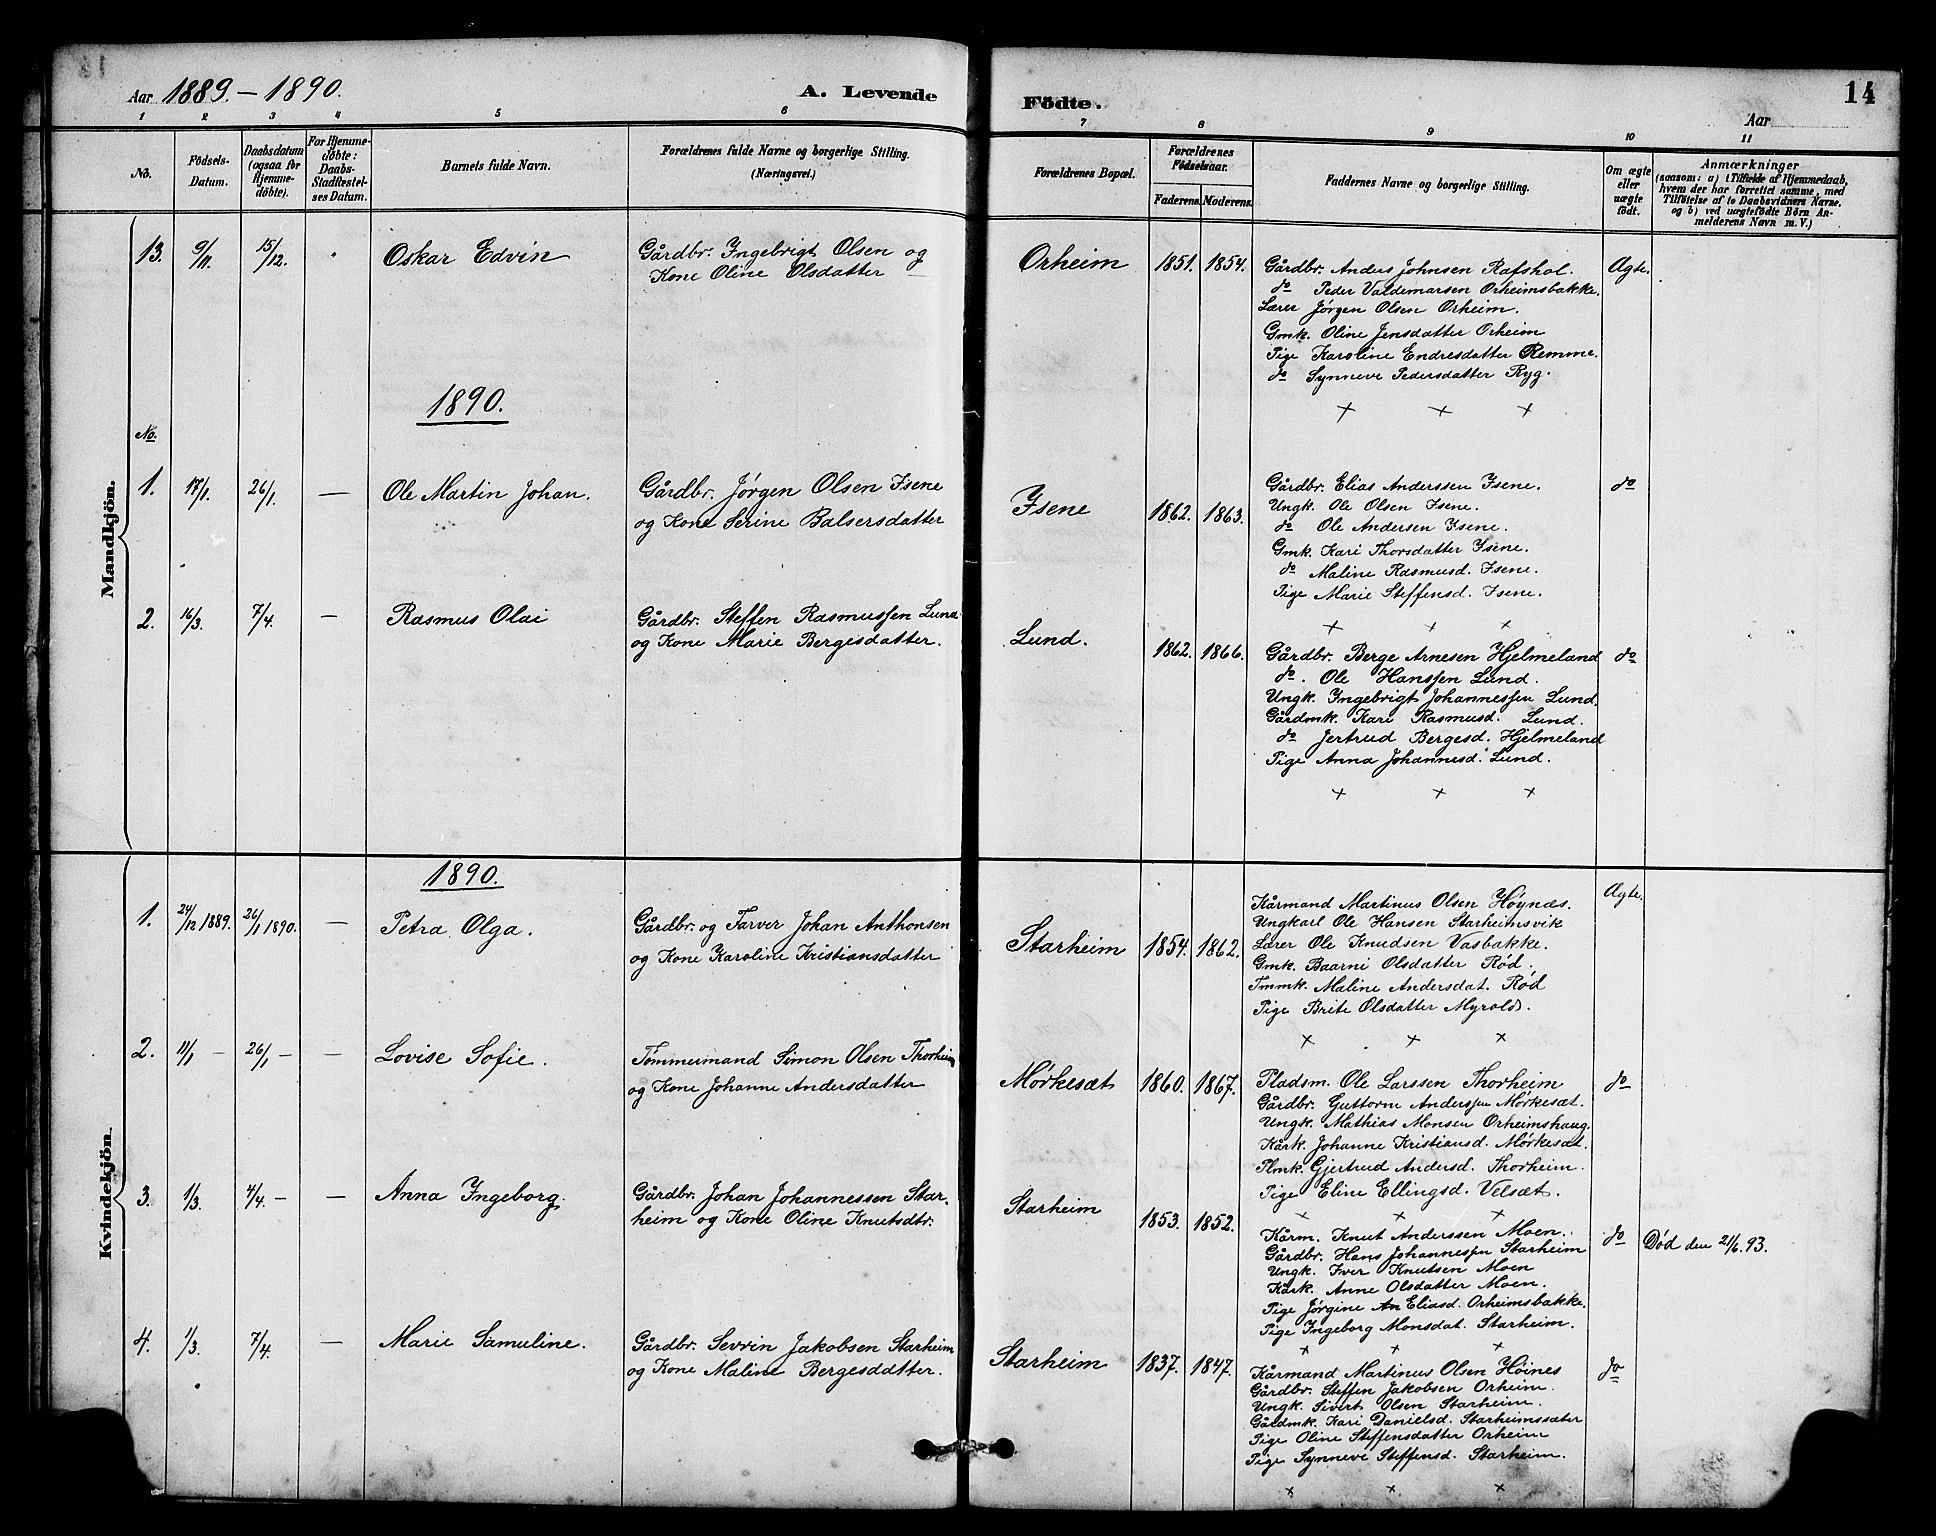 Aar 1889. - 1890.
A. Levende Födte.
14
Aar
1 2 3 4 5 6 7 8 9 10 11
No.
Födsels-Datum.
Daabsdatum (ogsaa for Hjemmedöbte).
For Hjemmedöbte: Daabs-Stadfæstelses Datum.
Barnets fulde Navn.
Forældrenes fulde Navne og borgerlige Stilling.
(Næringsvei.)
Forældrenes Bopæl.
Forældrenes Födselsaar.
Faderens. Moderens.
Faddernes Navne og borgerlige Stilling.
Om ægte eller uægte födt.
Anmærkninger
(saasom: a) i Tilfælde af Hjemmedaab, hvem der har forrettet samme, med Tilföielse af to Daabsvidners Navne. og b) ved uægtefödte Börn Anmelderens Navn m. V.)
Mandkjön.
13. 9/11. 15/12. " Oskar Edvin
Gårdbr. Ingebrigt Olsen og
Kone Oline Olsdatter
Orheim 1851. 1854.
Gårdbr. Anders Johnsen Rafshol.
do Peder Valdemarsen Orheimsbakke.
Lærer Jørgen Olsen Orheim.
Gmk. Oline Jensdatter Orheim
Pige Karoline Endresdatter Remme.
do Synneve Pedersdatter Ryg.
Ægte.
+ + +
1890.
No.
1. 17/1. 26/1. — Ole Martin Johan.
Gårdbr. Jørgen Olsen Isene
og Kone Serine Balsersdatter
Isene 1862. 1863.
Gårdbr. Elias Anderssen Isene.
Ungk. Ole Olsen Isene.
do Ole Andersen Isene.
Gmk. Kari Thorsdatter Isene.
do Maline Rasmusd. Isene.
Pige Marie Steffensd. Isene.
do
+ + ×
2. 16/3. 7/4. — Rasmus Olai
Gårdbr. Steffen Rasmussen Lund
og Kone Marie Bergesdatter.
Lund. 1862. 1866.
Gårdbr. Berge Arnesen Hjelmeland
do. Ole Hanssen Lund.
Ungk. Ingebrigt Johannessen Lund.
Gårdmk. Kari Rasmusd. Lund.
do Jertrud Bergesd. Hjelmeland
Pige Anna Johannesd. Lund.
do
+ + ×
Kvindekjön.
1890.
1. 24/12 1889. 26/1 1890. — Petra Olga.
Gårdbr. og Farver Johan Anthonsen
og Kone Karoline Kristiansdatter
Starheim 1854. 1862.
Kårmand Martinus Olsen Høynæs.
Ungkarl Ole Hansen Starheimsvik
Lærer Ole Knudsen Vasbakke.
Gmk. Baarni Olsdatter Rød.
Tmmk. Maline Andersdat. Rød
Pige Brite Olsdatter Myrold.
Ægte.
× × ×
2. 11/1 - 26/1 - — Lovise Sofie.
Tømmermand Simon Olsen Thorheim
og Kone Johanne Andersdatter
Mørkesæt 1860. 1867.
Pladsm. Ole Larssen Thorheim
Gårdbr. Guttorm Anderssen Mørkesæt.
Ungk. Mathias Monsen Orheimshaug.
Kårk. Johanne Kristiansd. Mørkesæt.
Plmk. Gjertrud Andersd. Thorheim.
Pige Eline Ellingsd. Velsæt.
do
× × ×
3. 1/3. 4/4 - — Anna Ingeborg.
Gårdbr. Johan Johannessen Star-
heim og Kone Oline Knutsdtr.
Starheim 1853. 1852.
Kårm. Knut Anderssen Moen.
Gårdbr. Hans Johannessen Starheim
Ungk. Iver Knutsen Moen
Kårk. Anne Olsdatter Moen.
Pige Jørgine An Eliasd. Orheimsbakke.
Pige Ingeborg Monsdat. Starheim.
do Død den 21/6. 93.
× × ×
4. 1/3. 7/4. — Marie Samuline.
Gårdbr. Sevrin Jakobsen Starheim
og Kone Maline Bergesdatter.
Starheim 1837. 1847.
Kårmand Martinus Olsen Høines
Gårdbr. Steffen Jakobsen Orheim.
Ungk. Sivert Olsen Starheim.
Gårdmk. Kari Danielsd. Starheimssæter
Pige Oline Steffensdatter Orheim
Pige Synneve Steffensd. Starheim.
do
× × ×